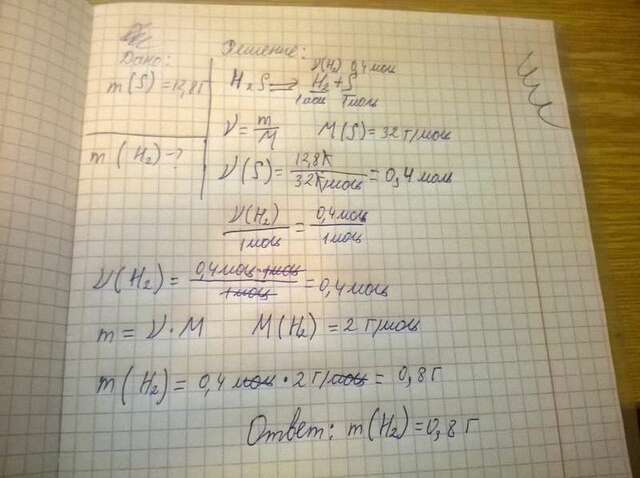 Дано:
m(S)=12,8г
m(H₂)-?
Решение:
ν(H₂) 0,4моль
H₂S ⇒ H₂+S
1моль 1моль
ν=m/M M(S)=32г/моль
ν(S)=12,8г/32г/моль=0,4моль
ν(H₂)/1моль=0,4моль/1моль
ν(H₂)=0,4моль·1моль/1моль=0,4моль
m=ν·M M(H₂)=2г/моль
m(H₂)=0,4моль·2г/моль=0,8г
Ответ: m(H₂)=0,8г